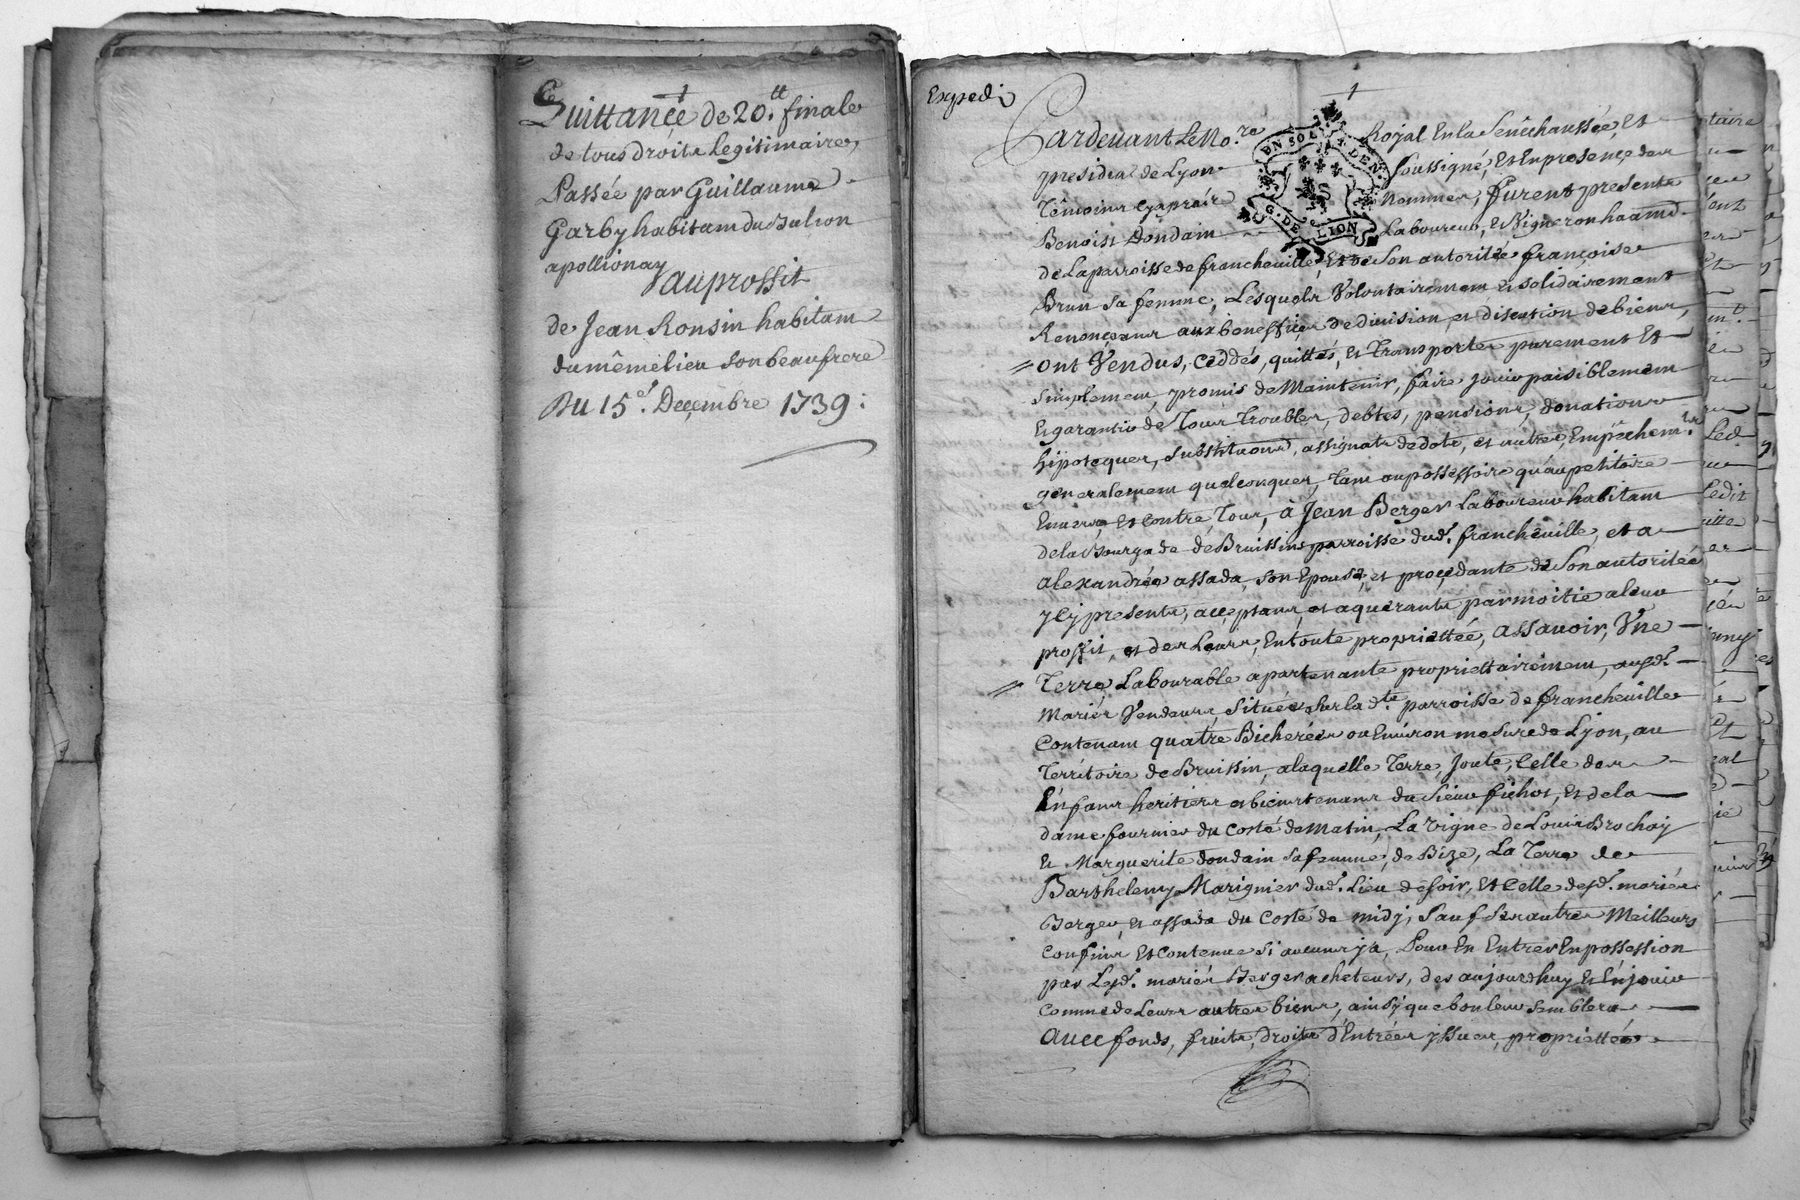 Quittance de 20.tt finale
de tous droits legitimaires,
Passée par Guillaume
Garby habitant du
apollionay
au proffit
de Jean Ronsin habitant
du même lieu son beaufrere
Du 15e. Decembre 1739:
1
Expedi
Pardevant Le No.re Royal En la Senêchaussée, Et
presidial de Lyon Soussigné, Et En presence des
Têmoins cyaprés Nommés, furent presents
EN SOL 4 DEN.
G. DE LION
Benoist Dondain Laboureur, et Vigneron haãnt.
de La parroisse de francheuille, Et de Son autoritée françoise
Brun sa femme, Lesquels Volontairement et solidairement
Renonçants aux beneffices de diuision, et discution de biens,
ont Vendus, ceddés, quittés, Et transportés purement Et
simplement, promis de Maintenir, faire joüir paisiblement
Et garantir de Tous Troubles, debtes, pensions, donations
hipoteques, substitutions, assignats de dote, et autres Empêchem.ts
generalement quelconques, tant au possessoire qu'au petitoire
Enuers, Et contre Tous, à Jean Berger Laboureur habitant
de la Bourgade de Bruissins parroisse dud. francheuille, et a
alexandrée assada, son Epouse, et procedante de Son autoritée
ycy presents, acceptants, et aquerants par moitié a leur
proffit, et des Leurs, En toute propriettée, assauoir, Vne
Terre Labourable apartenante propriettairement, ausd.
Mariés Vendeurs, Située Sur la d.te parroisse de francheuille
Contenant quatre Bicherées ou Enuiron mesure de Lyon, au
Territoire de Bruissin, a laquelle Terre, Joute, Celle des
Enfants heritiers et bientenants du Sieur fichot, Et de la
dame fournier du Costé de Matin, La Vigne de Louis Brochay
Et Marguerite dondain sa femme, de Bize, La Terre de
Barthelemy Marignier dud. Lieu de soir, Et Celle desd. mariés
Berger, Et assada du Costé de midy, Sauf Ses autres Meilleurs
Confins Et contenue Si aucuns y a, Pour En Entrer En possession
par Lesd. mariés Berger acheteurs, des aujourdhuy Et En joüir
Comme de Leurs autres biens, ainsy que bon leur semblera
Auec fonds, fruits, droits d'Entrées yssues, propriettés